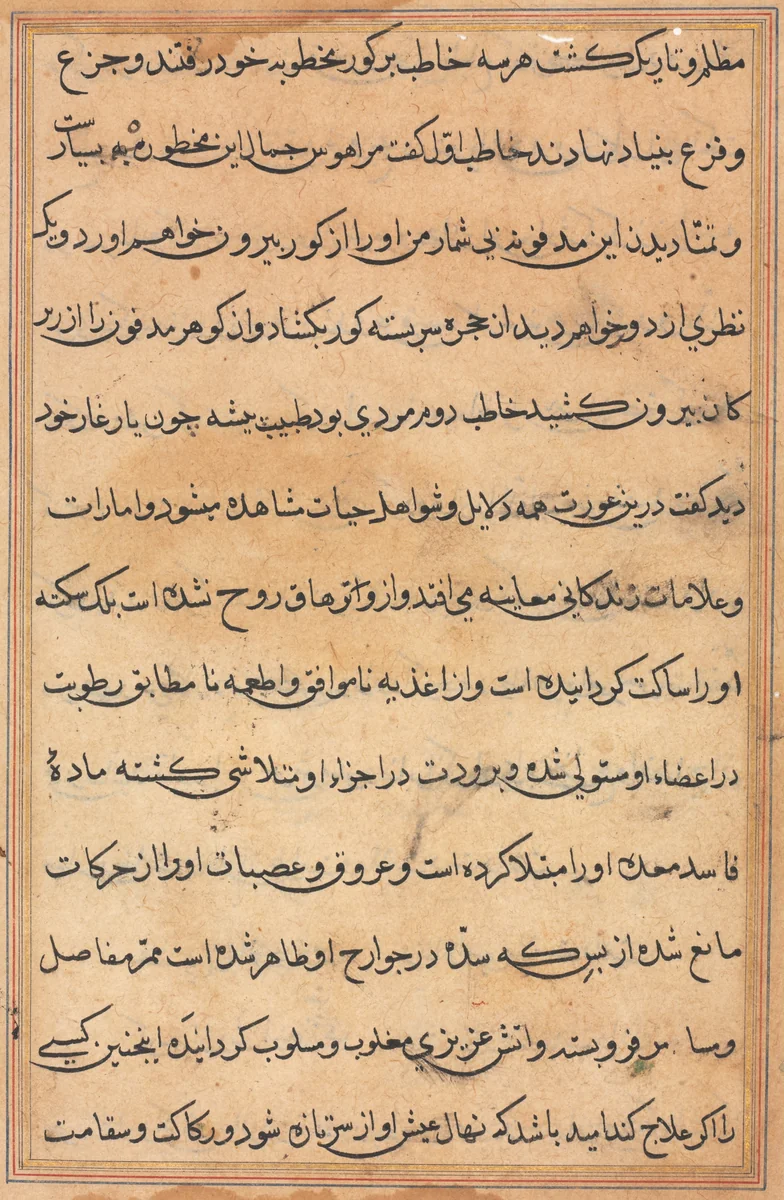 مظلم و تاریک کشت هر سه خاطب بر کور مخطوبه خود رفتند و جزع
و فزع بنیاد نهادند خاطب اوّل کفت مرا هوس جمال این مخطوره به بسیارست
و تمنّا دیدن این مدفونه بی شمار من او را از کور بیرون خواهم اورد و یک
نظری از دور خواهم دید ان حجره سر بسته کور بکشاد و ان کوهر مدفون را از زیر
کان بیرون کشید خاطب دوم مردی بود طبیب پیشه چون یار غار خود
دید کفت درین عورت همه دلایل و شواهد حیات مشاهده میشود و امارات
و علامات زندکانی معاینه می افتد و از و اثر هاق روح نشده است بلک سکته
او را ساکت کردانیده است و از اغذیه ناموافق و اطعمه نا مطابق رطوبت
در اعضاء او مستولی شده و برودت در اجزاء او متلاشی کشته مادهٔ
فاسد معده او را مبتلا کرده است و عروق و عصبات او را از حرکات
مانع شده از بسِ که سدّه در جوارح او ظاهر شده است ممرّ مفاصل
و مسام فرو بسته و اتش عزیزی مغلوب و مسلوب کردانیَده اینچنین کسی
را اکر علاج کند امید باشد که نهال عیش او از سر تازه شود و رکاکت و سقامت